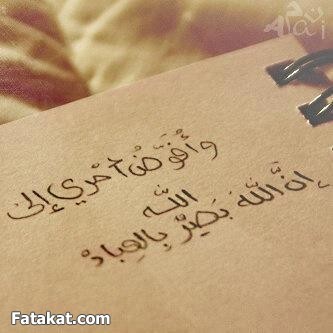 وأفوّضُ أمري إلى
الله
إنّ اللَّهَ بَصِيرٌ بِالعِبادْ
Fatakat.com